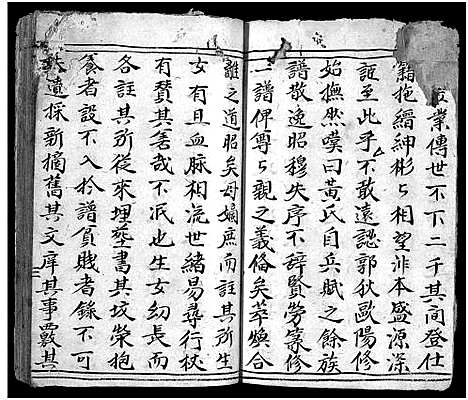 業傳世不下二千其间登仕
籍抱縉紳彬々相望非本盛源深
詎至此乎不敢遠認郭狄歐陽修
始撫然嘆曰黄氏自兵賦之餘族
譜散逸昭穆失序不辞賢勞篆修
一譜俾尊々親之義俻矣萃焕合
離之道昭矣母嫡庶而註其所生
女有且血脉相流世緒易尋行状
有賛其善哉不泯也生女幼長而
各註其所従來埋塟書其坟榮抱
養者設不入於譜負賎者錄不可
遺採新摘舊其文庠其事覈其